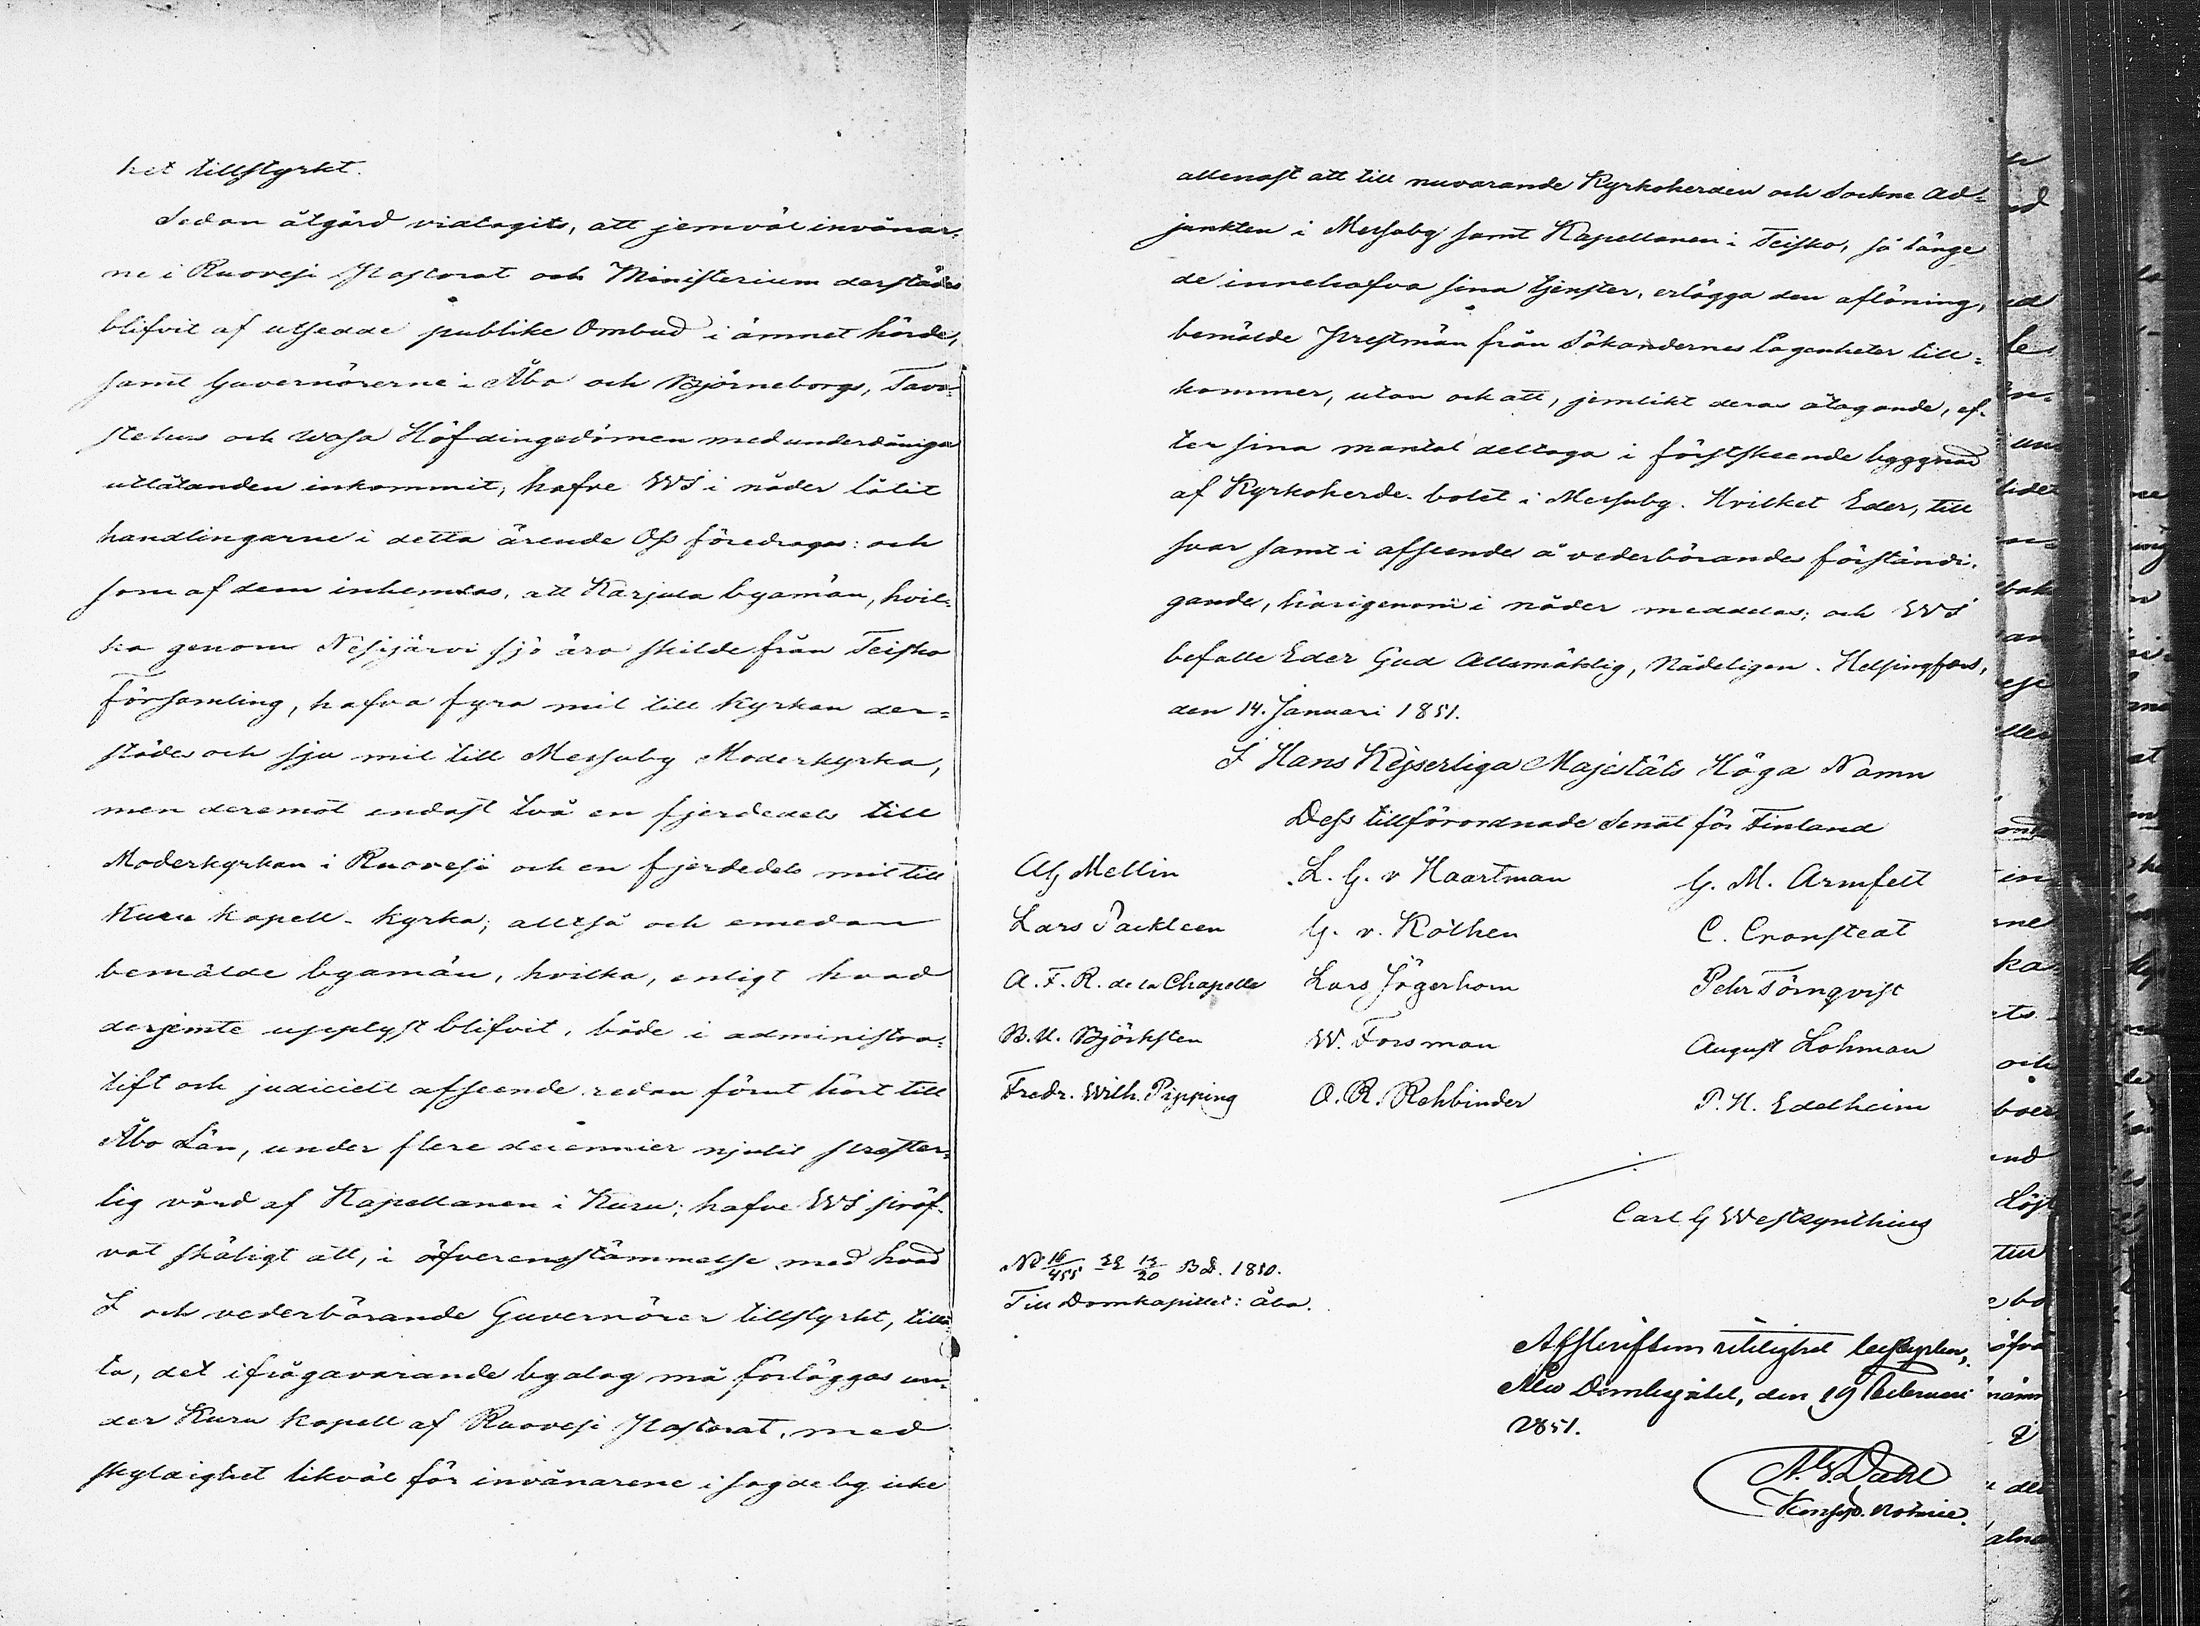 het tillstyrkt.
Sedan åtgärd vidtagits, att jemväl invånar-
ne i Ruovesi Pastorat och Ministerium derstädes
blifvit af utsedde publike Ombud i ämnet hörde,
samt Guvernörerne i Åbo och Björneborgs, Tava-
stehus och Wasa Höfdingedömen med underdåniga
utlåtanden inkommit; hafve WI i nåder låtit
handlingarne i detta ärende Oss föredragas: och
som af dem inhemtas, att Karjula byamän, hvil-
ka genom Nesijärvi sjö äro skilde från Teisko
Församling, hafva fyra mil till Kyrkan der-
städes och sju mil till Messuby Moderkyrka,
men deremot endast två en fjerdedels till
Moderkyrkan i Ruovesi och en fjerdedels mil till
Kuru kapell-kyrka; alltså och emedan
bemälde byamän, hvilka, enligt hvad
derjemte upplyst blifvit, både i administra-
tift och judiciell afseende redan förut hört till
Åbo Län, under flere decennier njutit prester-
lig vård af Kapellanen i Kuru; hafve WI pröf-
vat skäligt att, i öfverensstämmelse med hvad
I och vederbörande Guvernörer tillstyrkt, tillå-
ta, det ifrågavarande byalag må förläggas un-
der Kuru kapell af Ruovesi Pastorat, med
skyldighet likväl för invånarene i sagde by icke
allenast att till nuvarande Kyrkoherden och Sockne Ad-
junkten i Messuby samt Kapellanen i Teisko, så länge
de innehafva sina tjenster, erlägga den aflöning,
bemälde Prestmän från Sökandernes lägenheter till-
kommer, utan ock att, jemlikt deras åtagande, ef-
ter sina mantal deltaga i förstskeende byggnad
af Kyrkoherde-bolet i Messuby. Hvilket Eder, till
svar samt i afseende å vederbörandes förständi-
gande, härigenom i nåder meddelas; och WI
befalle Eder Gud Allsmäktig, Nådeligen. Helsingfors,
den 14. Januari 1851.
I Hans Kejserliga Majestäts Höga Namn
Dess tillförordnade Senat för Finland
AG Mellin L. G. v Haartman G. M. Armfelt
Lars Sackleen G. v. Köthen C. Cronstedt
A. F. R. de la Chapelle Lars Jägerhorn Pehr Törnqvist
B. U. Björksten W. Forsman August Lohman
Fredr. Wilh. Pipping O. R. Rehbinder P. H. Edelheim
Carl G Westzynthius
No 16/455 12/20 BD. 1850.
Till Domkapitlet i Åbo.
Afskriftens riktighet bestyrker,
Åbo Domkapitel, den 19 Februari
1851.
A. E. Dahl
Konsist. Notarie.